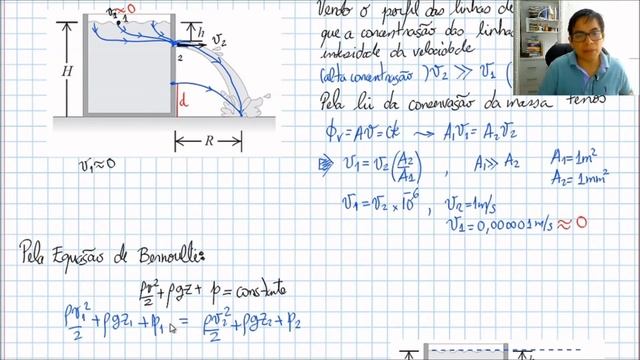 v₁≈0
1
h
v₂
2
H
d
R
v₁≈0
Vendo o perfil das linhas de
que a concentração das linhas
intensidade da velocidade
(alta concentração) v₂ >> v₁ (
Pela lei da conservação da massa temos
ϕᵥ = Av = cte → A₁v₁ = A₂v₂
v₁ = v₂(A₂/A₁) , A₁ >> A₂ A₁ = 1m²
A₂ = 1mm²
v₁ = v₂ × 10⁻⁶ , v₂ = 1m/s
v₁ = 0,000001m/s ≈ 0
Pela Equação de Bernoulli:
ρv²/2 + ρgz + p = constante
ρv₁²/2 + ρgz₁ + p₁ = ρv₂²/2 + ρgz₂ + p₂